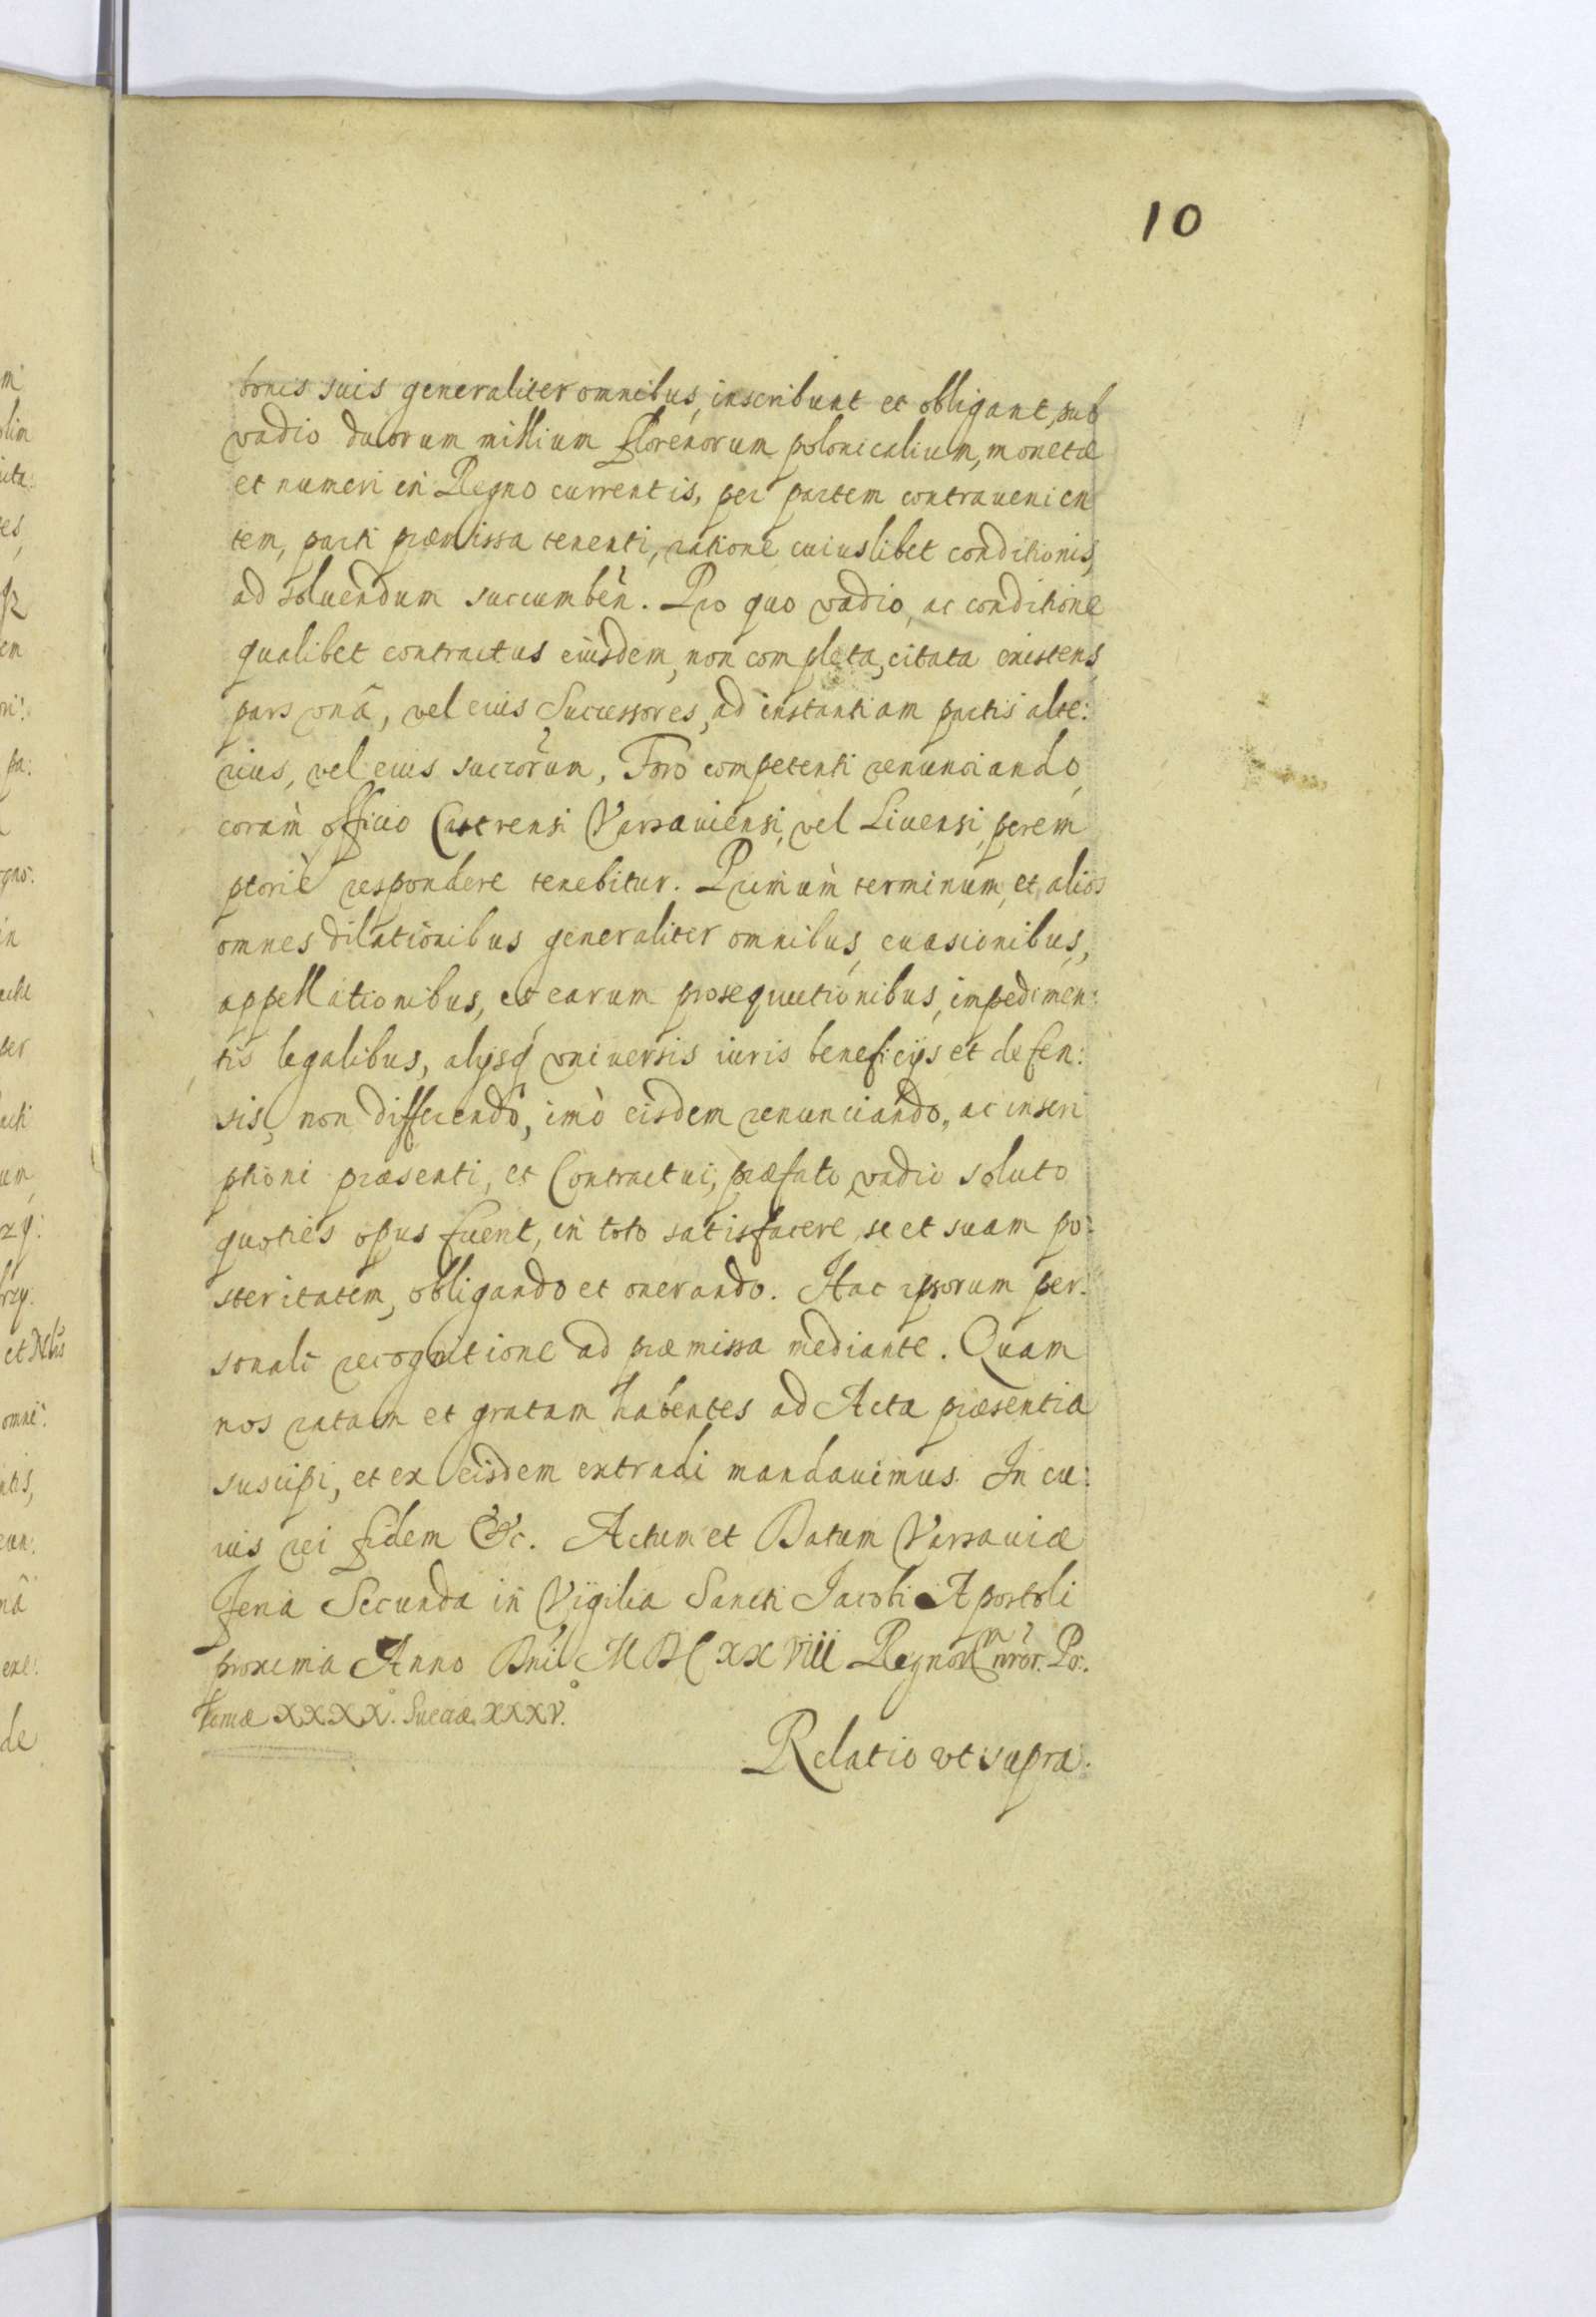 10
bonis suis generaliter omnibus, inscribunt et obligant, sub
vadio duorum millium florenorum polonicalium, monetæ
et numeri in Regno currentis, per partem contravenien
tem, parti præmissa tenenti, ratione cuiuslibet conditionis,
ad soluendum succumbeñ. Pro quo vadio, ac conditione
qualibet contractus eiusdem, non completa, citata existens
pars vnâ, vel eius Successores, ad instantiam partis alte:
rius, vel eius succorum, Foro competenti renunciando,
coram officio Castrensi Varsauiensi, vel Liuensi, perem
ptoriè respondere tenebitur. Primum terminum, et alios
omnes dilationibus generaliter omnibus, euasionibus,
appellationibus, et earum prosequutionibus, impedimen:
tis legalibus, alijsq́ vniuersis iuris beneficijs et defen:
sis, non differendo, imò eisdem renunciando, ac inscri
ptioni præsenti, et Contractui, præfato vadio soluto
quoties opus fuerit, in toto satisfacere, se et suam po:
steritatem, obligando et onerando. Hac ipsorum per:
sonali recognitione ad præmissa mediante. Quam
nos ratam et gratam habentes ad Acta præsentia
suscipi, et ex eisdem extradi mandauimus. In cu:
ius rei fidem &c. Actum et Datum Varsauiæ
Feria Secunda in Vigilia Sancti Jacobi Apostoli
proxima Anno Dñi MDCXXVIII Regnorm nror. Po:
loniæ XXXX. Sueciæ XXXV.
Relatio vt supra.